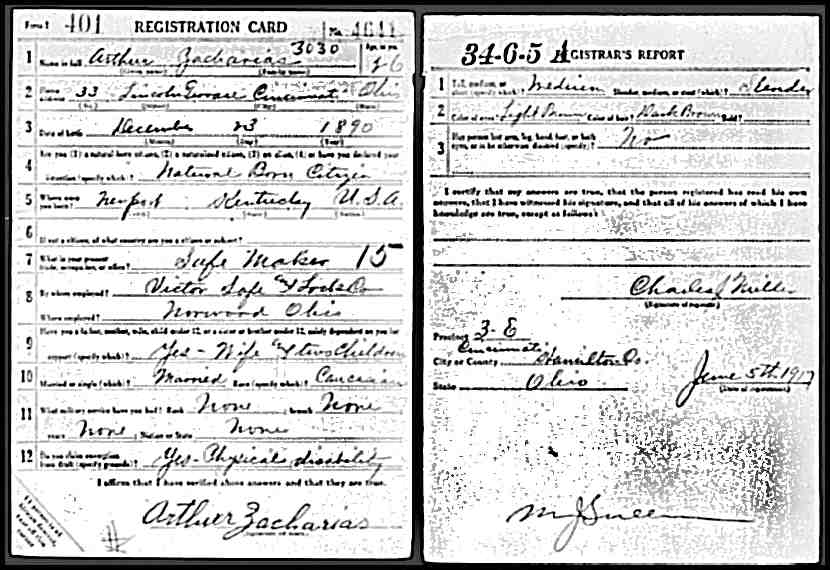 Form 1 401 REGISTRATION CARD No. 4641
3030
1 Name in full Arthur Zacharias Age, in yrs. 26
(Given name) (Family name)
2 Home address 33 Lincoln Terrace Cincinnati Ohio
(No.) (Street) (City) (State)
3 Date of birth December 23 1890
(Month) (Day) (Year)
4 Are you (1) a natural born citizen, (2) a naturalized citizen, (3) an alien, (4) or have you declared your
intention (specify which)? Natural Born Citizen
5 Where were you born? Newport Kentucky U.S.A
(Town) (State) (Nation)
6 If not a citizen, of what country are you a citizen or subject?
7 What is your present trade, occupation, or office? Safe Maker 15
8 By whom employed? Victor Safe & Lock Co
Where employed? Norwood Ohio
9 Have you a father, mother, wife, child under 12, or a sister or brother under 12, solely dependent on you for
support (specify which)? Yes - Wife & two Children
10 Married or single (which)? Married Race (specify which)? Caucasian
11 What military service have you had? Rank None branch None
years None Nation or State None
12 Do you claim exemption from draft (specify grounds)? Yes - Physical disability
I affirm that I have verified above answers and that they are true.
Arthur Zacharias
(Signature or mark)
34-6-5 A REGISTRAR'S REPORT
1 Tall, medium, or short (specify which)? Medium Slender, medium, or stout (which)? Slender
2 Color of eyes Light Brown Color of hair Dark Brown Bald?
3 Has person lost arm, leg, hand, foot, or both
eyes, or is he otherwise disabled (specify)? No
I certify that my answers are true, that the person registered has read his own
answers, that I have witnessed his signature, and that all of his answers of which I have
knowledge are true, except as follows:
Charles J Miller
(Signature of registrar)
Precinct 3-E
Cincinnati
City or County Hamilton Co.
State Ohio June 5th 1917
(Date of registration)